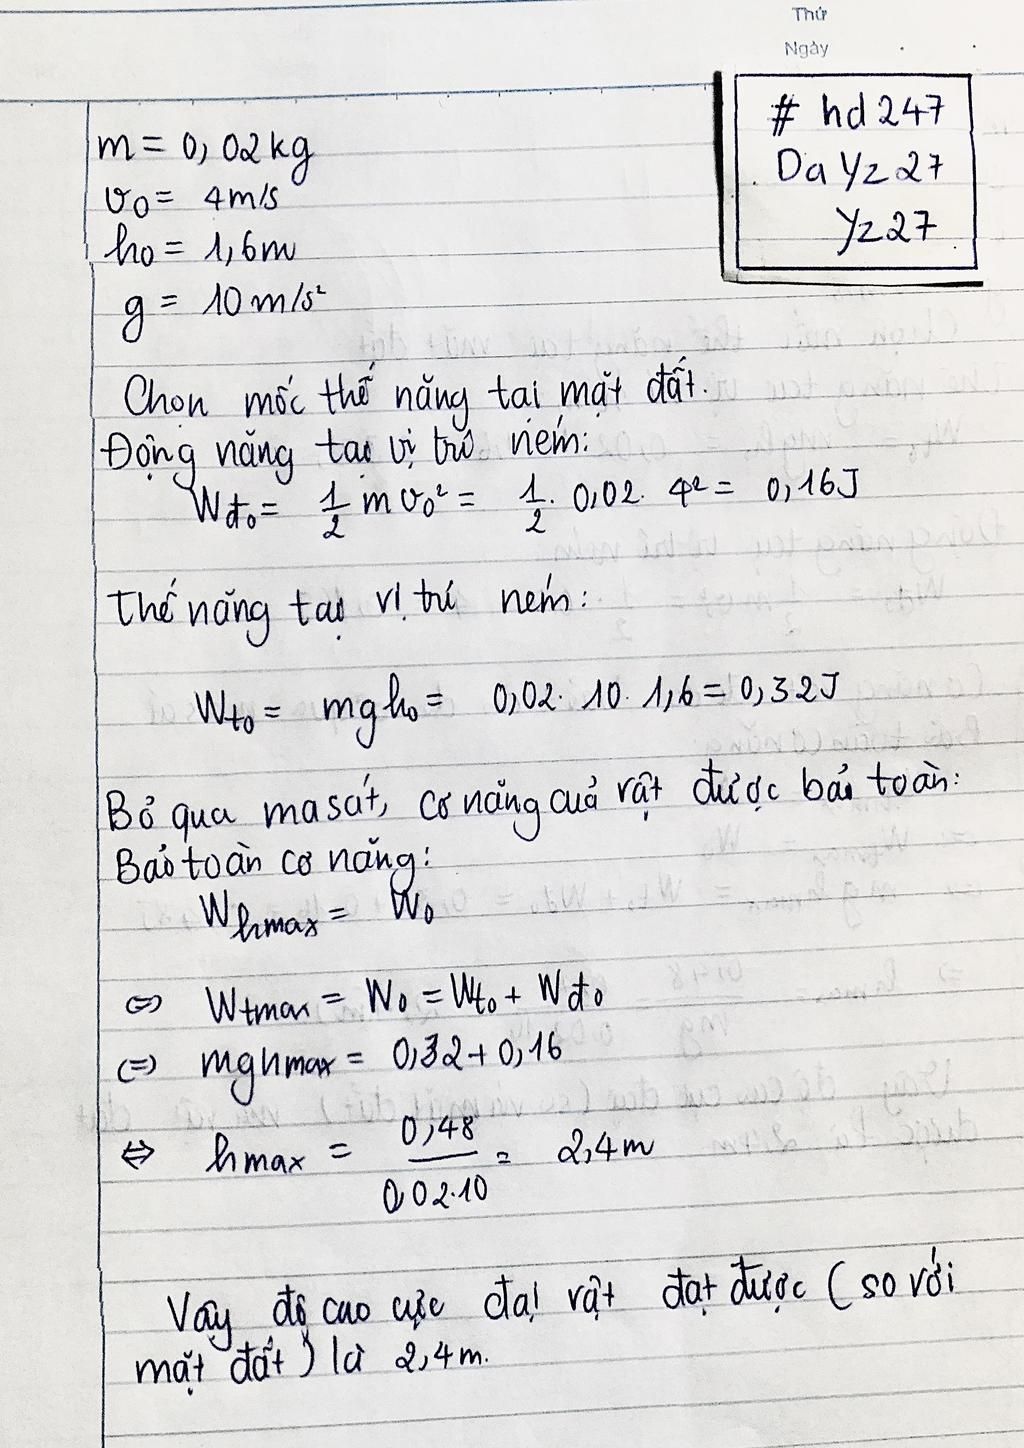 Thứ
Ngày
# hd247
Da Yz27
Yz27
m = 0,02kg
v0 = 4m/s
h0 = 1,6m
g = 10m/s²
Chọn mốc thế năng tại mặt đất.
Động năng tại vị trí ném:
Wđ0 = 1/2 mv0² = 1/2 . 0,02 . 4² = 0,16J
Thế năng tại vị trí ném:
Wt0 = mgh0 = 0,02 . 10 . 1,6 = 0,32J
Bỏ qua ma sát, cơ năng của vật được bảo toàn:
Bảo toàn cơ năng:
Whmax = W0
⇔ Wtmax = W0 = Wt0 + Wđ0
⇔ mghmax = 0,32 + 0,16
⇔ hmax = 0,48 / 0,02.10 = 2,4m
Vậy độ cao cực đại vật đạt được (so với
mặt đất) là 2,4m.